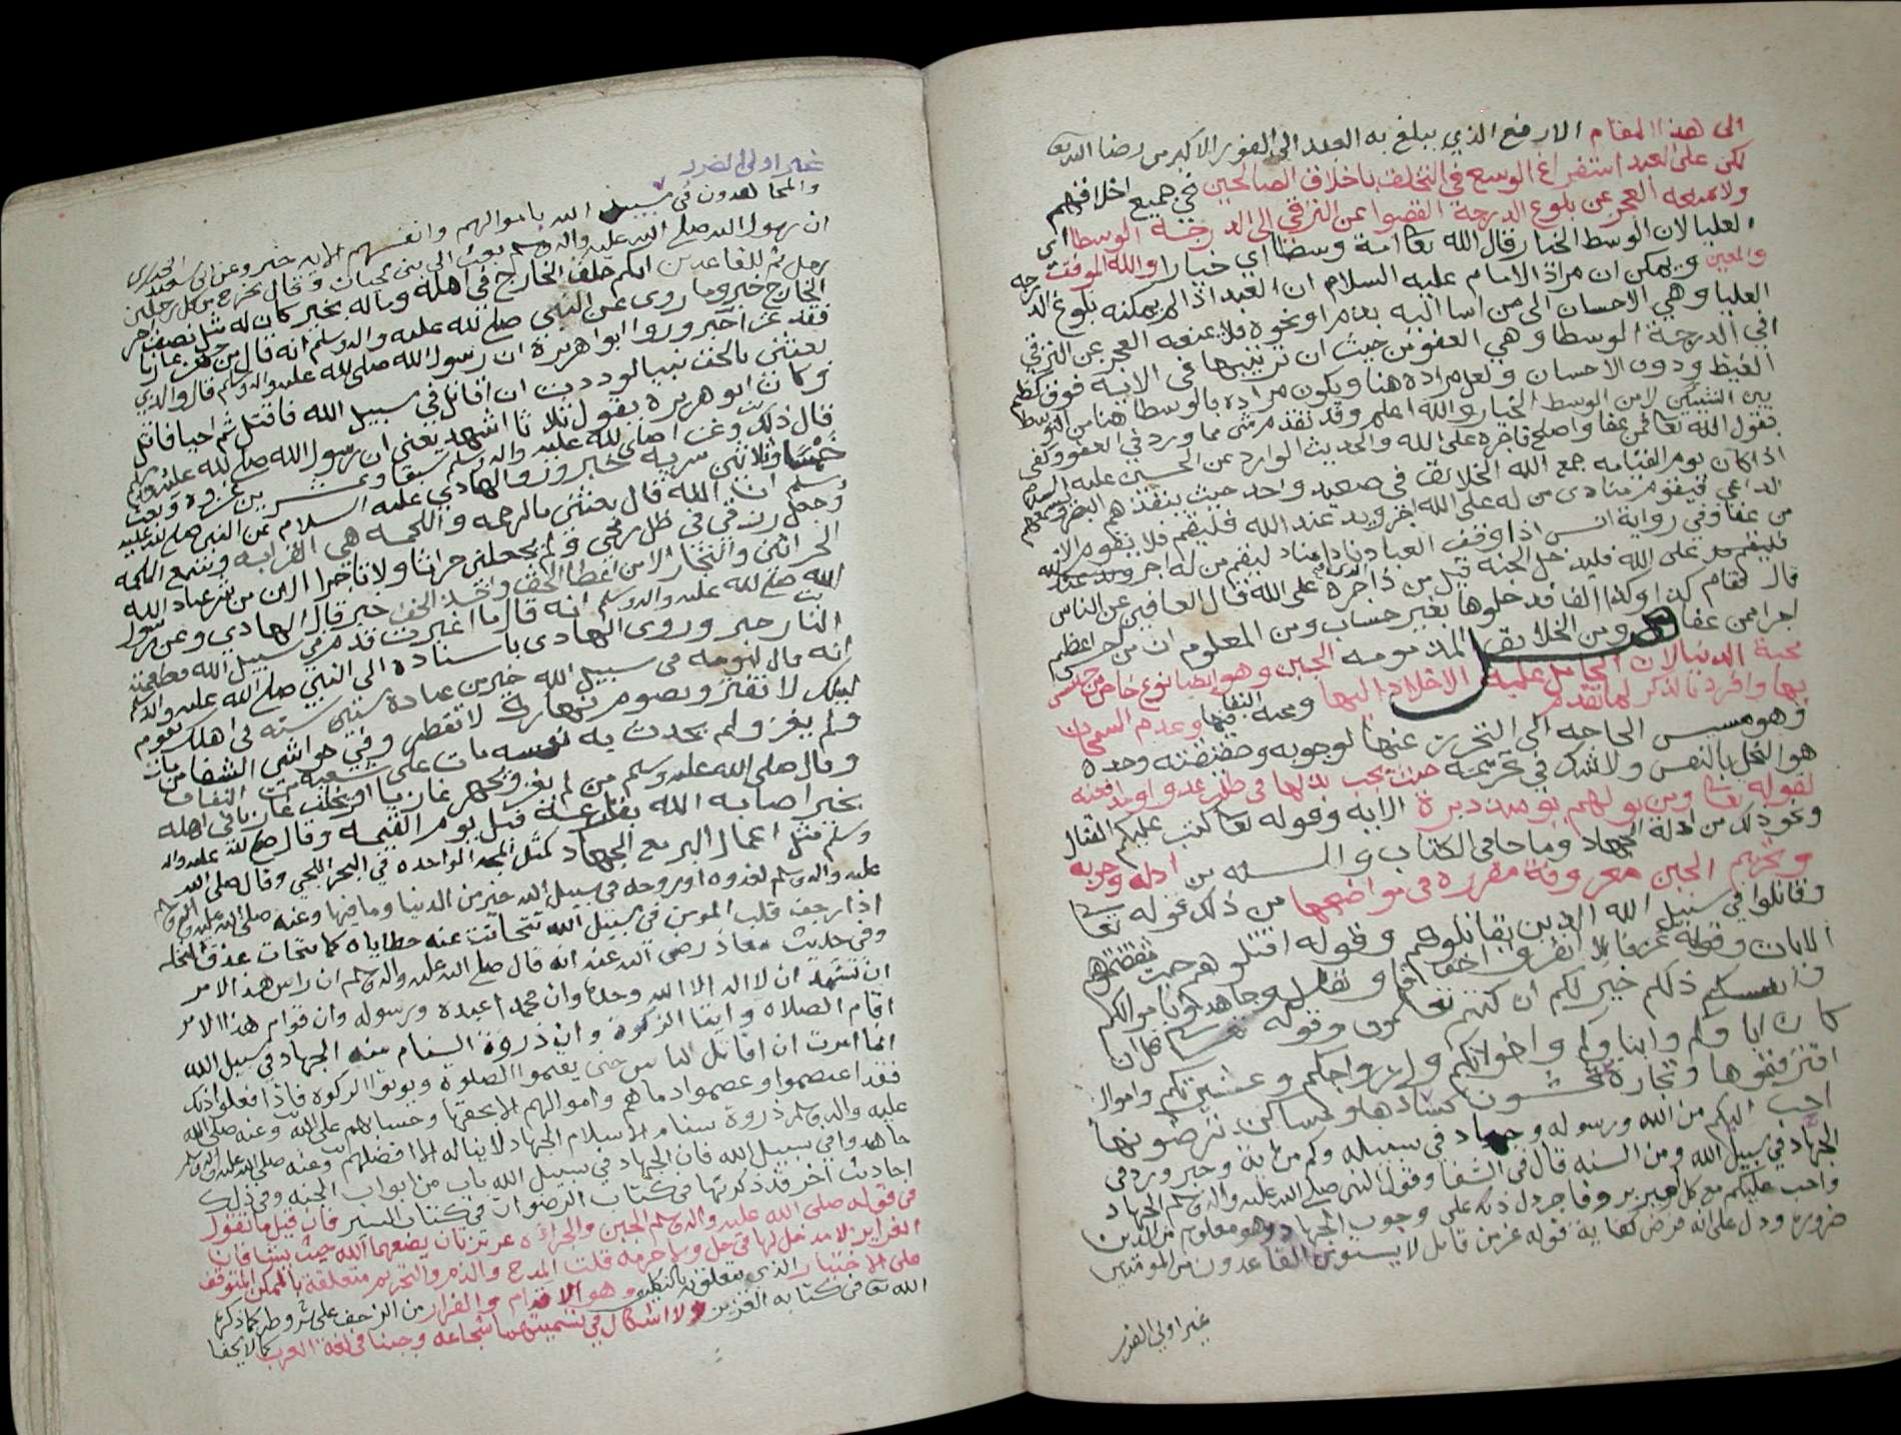 الى هذا المقام الارفع الذي يبلغ به العبد الى الفوز الاكبر من رضا الله تعا
لكن على العبد استفراغ الوسع في التخلف باخلاق الصالحين في جميع اخلاقهم
ولا يمنعه العجز عن بلوغ الدرجة القصوا عن الترقي الى الدرجة الوسطا اي
العليا لان الوسط الخيار قال الله تعا امة وسطا اي خيارا والله الموفق
والمعين ويمكن ان مراد الامام عليه السلام ان العبد اذا لم يمكنه بلوغ الدرجه
العليا وهي الاحسان الى من اسا اليه بدعا او نحوه فلا يمنعه العجز عن الترقي
الى الدرجة الوسطا وهي العفو من حيث ان ترتيبها في الاية فوق كظم
الغيظ ودون الاحسان ولعل مراده هنا ويكون مراده بالوسطا هنا من التوسط
بين الشيئين لا من الوسط الخيار والله اعلم وقد تقدم شي مما ورد في العفو وكفى
بقول الله تعا فمن عفا واصلح فاجره على الله والحديث الوارد عن الحسين عليه السلام
اذا كان يوم القيامه جمع الله الخلائق في صعيد واحد حيث ينفذهم البصر ويسمعهم
الداعي فيقوم منادى من له على الله اجر ويد عند الله فليقم فلا يقوم الا
من عفا وفي رواية انس اذا وقف العباد نادا مناد ليقم من له اجر
فليقم على الله فليدخل الجنة قيل من ذا اجره على الله قال العافين عن الناس
قال فقام كذا وكذا الفا فدخلوها بغير حساب ومن المعلوم ان من اعظم
اجرا ممن عفا ومن الخلائق المذمومه الجبن وهو ايضا نوع خاص من جنس
محبة الدنيا لان الحامل عليه الاخلاد اليها ومحبه البقا فيها وعدم السماحه
بها وافرد بالذكر لما تقدم
وهو مسيس الحاجه الى التحرز عنها لوجوبه وحقيقته وحده
هو البخل بالنفس ولا شك في تحريمه حيث يجب بذلها في طلب عدو او مدافعته
لقوله تعا ومن يولهم يومئذ دبره الايه وقوله تعا كتب عليكم القتال
ونحو ذلك من ادلة الجهاد وما جا في الكتاب والسنه من ادله وجوبه
وتحريم الجبن معروفة مقررة في مواضعها من ذلك قوله تعا
وقاتلوا في سبيل الله الذين يقاتلونكم وقوله اقتلوهم حيث ثقفتموهم
الايات وقوله عز قائلا انفروا خفافا وثقالا وجاهدوا باموالكم
وانفسكم ذلكم خير لكم ان كنتم تعلمون وقوله قل ان
كان اباوكم وابناوكم واخوانكم وازواجكم وعشيرتكم واموال
اقترفتموها وتجارة تخشون كسادها ومساكن ترضونها
احب اليكم من الله ورسوله وجهاد في سبيله وكم من اية وخبر ورد في
الجهاد في سبيل الله ومن السنه قال في الشفا وقول النبي صلى الله عليه واله وسلم الجهاد
واجب عليكم مع كل امير بر وفاجر دل ذلك على وجوب الجهاد وهو معلوم من الدين
ضرورة ودل على انه فرض كفاية قوله عز من قائل لا يستوي القاعدون من المومنين
غير اولي الضرر
غير اولي الضرر
والمجاهدون في سبيل الله باموالهم وانفسهم الايه خبر وعن ابي سعيد الخدري
ان رسول الله صلى الله عليه واله وسلم بعث الى بني لحيان وقال يخرج من كل رجلين
رجل ثم للقاعدين ايكم خلف الخارج في اهله وماله بخير كان له مثل نصف اجر
الخارج خبر وما روى عن النبي صلى الله عليه واله وسلم انه قال من جهز غازيا
فقد غزا خبر وروا ابو هريرة ان رسول الله صلى الله عليه واله وسلم قال والذي
بعثني بالحق نبيا لوددت ان اقاتل في سبيل الله فاقتل ثم احيا فاقتل
وكان ابو هريرة يقول ثلاثا اشهد يعني ان رسول الله صلى الله عليه واله وسلم
قال ذلك وغزا صلى الله عليه واله وسلم سبعا وعشرين غزوة وبعث
خمسا وثلاثين سرية خبر وروا الهادي عليه السلام عن النبي صلى الله عليه
وسلم ان الله قال بعثني بالرحمه والملحمه هي الحرابه وتتبع الملحمه
وجعل رزقي في ظل رمحي ولم يجعلني حراثا ولا تاجرا الا ان من شر عباد الله
الحراثين والتجار الا من اعطا الحق واخذ الحق خبر قال الهادي وعن رسول
الله صلى الله عليه واله وسلم انه قال ما اغبرت قدم في سبيل الله فتطعمه
النار خبر وروى الهادي باسناده الى النبي صلى الله عليه واله وسلم
انه قال لنومه في سبيل الله خير من عبادة ستين سنه في اهلك تقوم
ليلك لا تفتر وتصوم نهارك لا تفطر وفي حواشي الشفا من مات
ولم يغز ولم يحدث به نفسه مات على شعبة من النفاق
وقال صلى الله عليه وسلم من لم يغز او يجهز غازيا او يخلف غازيا في اهله
بخير اصابه الله بقارعة قبل يوم القيمه وقال صلى الله عليه واله
وسلم مثل اعمال البر مع الجهاد كمثل المجه الواحده في البحر اللجي وقال صلى الله
عليه واله وسلم لغدوه او روحه في سبيل الله خير من الدنيا وما فيها وعنه صلى الله عليه واله وسلم
اذا رجف قلب المومن في سبيل الله تحاتت عنه خطاياه كما تحات عذق النخله
وفي حديث معاذ رضي الله عنه انه قال صلى الله عليه واله وسلم ان راس هذا الامر
ان تشهد ان لا اله الا الله وحده وان محمدا عبده ورسوله وان قوام هذا الامر
اقام الصلاه وايتا الزكوة وان ذروة السنام منه الجهاد في سبيل الله
انما امرت ان اقاتل الناس حتى يقيموا الصلوة ويوتوا الزكوة فاذا فعلوا ذلك
فقد اعتصموا وعصموا دماهم واموالهم الا بحقها وحسابهم على الله وعنه صلى الله
عليه واله وسلم ذروة سنام الاسلام الجهاد لا يناله الا افضلهم وعنه صلى الله عليه واله وسلم
جاهدوا في سبيل الله فان الجهاد في سبيل الله باب من ابواب الجنه وفي ذلك
احاديث اخر قد ذكرتها في كتاب الرضوان في كتاب السير فان قيل ما تقول
في قوله صلى الله عليه واله وسلم الجبن والجراه غريزتان يضعهما الله حيث يشا فان
الغرايز لا مدخل لها في حل ولا حرمه قلت المدح والذم والتحريم متعلقة بالممكن المتوقف
على الاختيار الذي يتعلق به التكليف وهو الاقدام والفرار من الزحف على شروطه كما ذكره
الله تعا في كتابه العزيز ولا اشكال في تسميتهما شجاعه وجبنا في لغة العرب كما لا يخفا